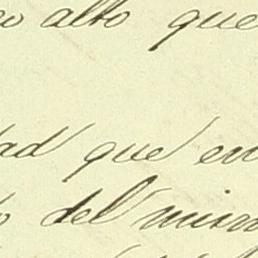 alto que
que en
del mism